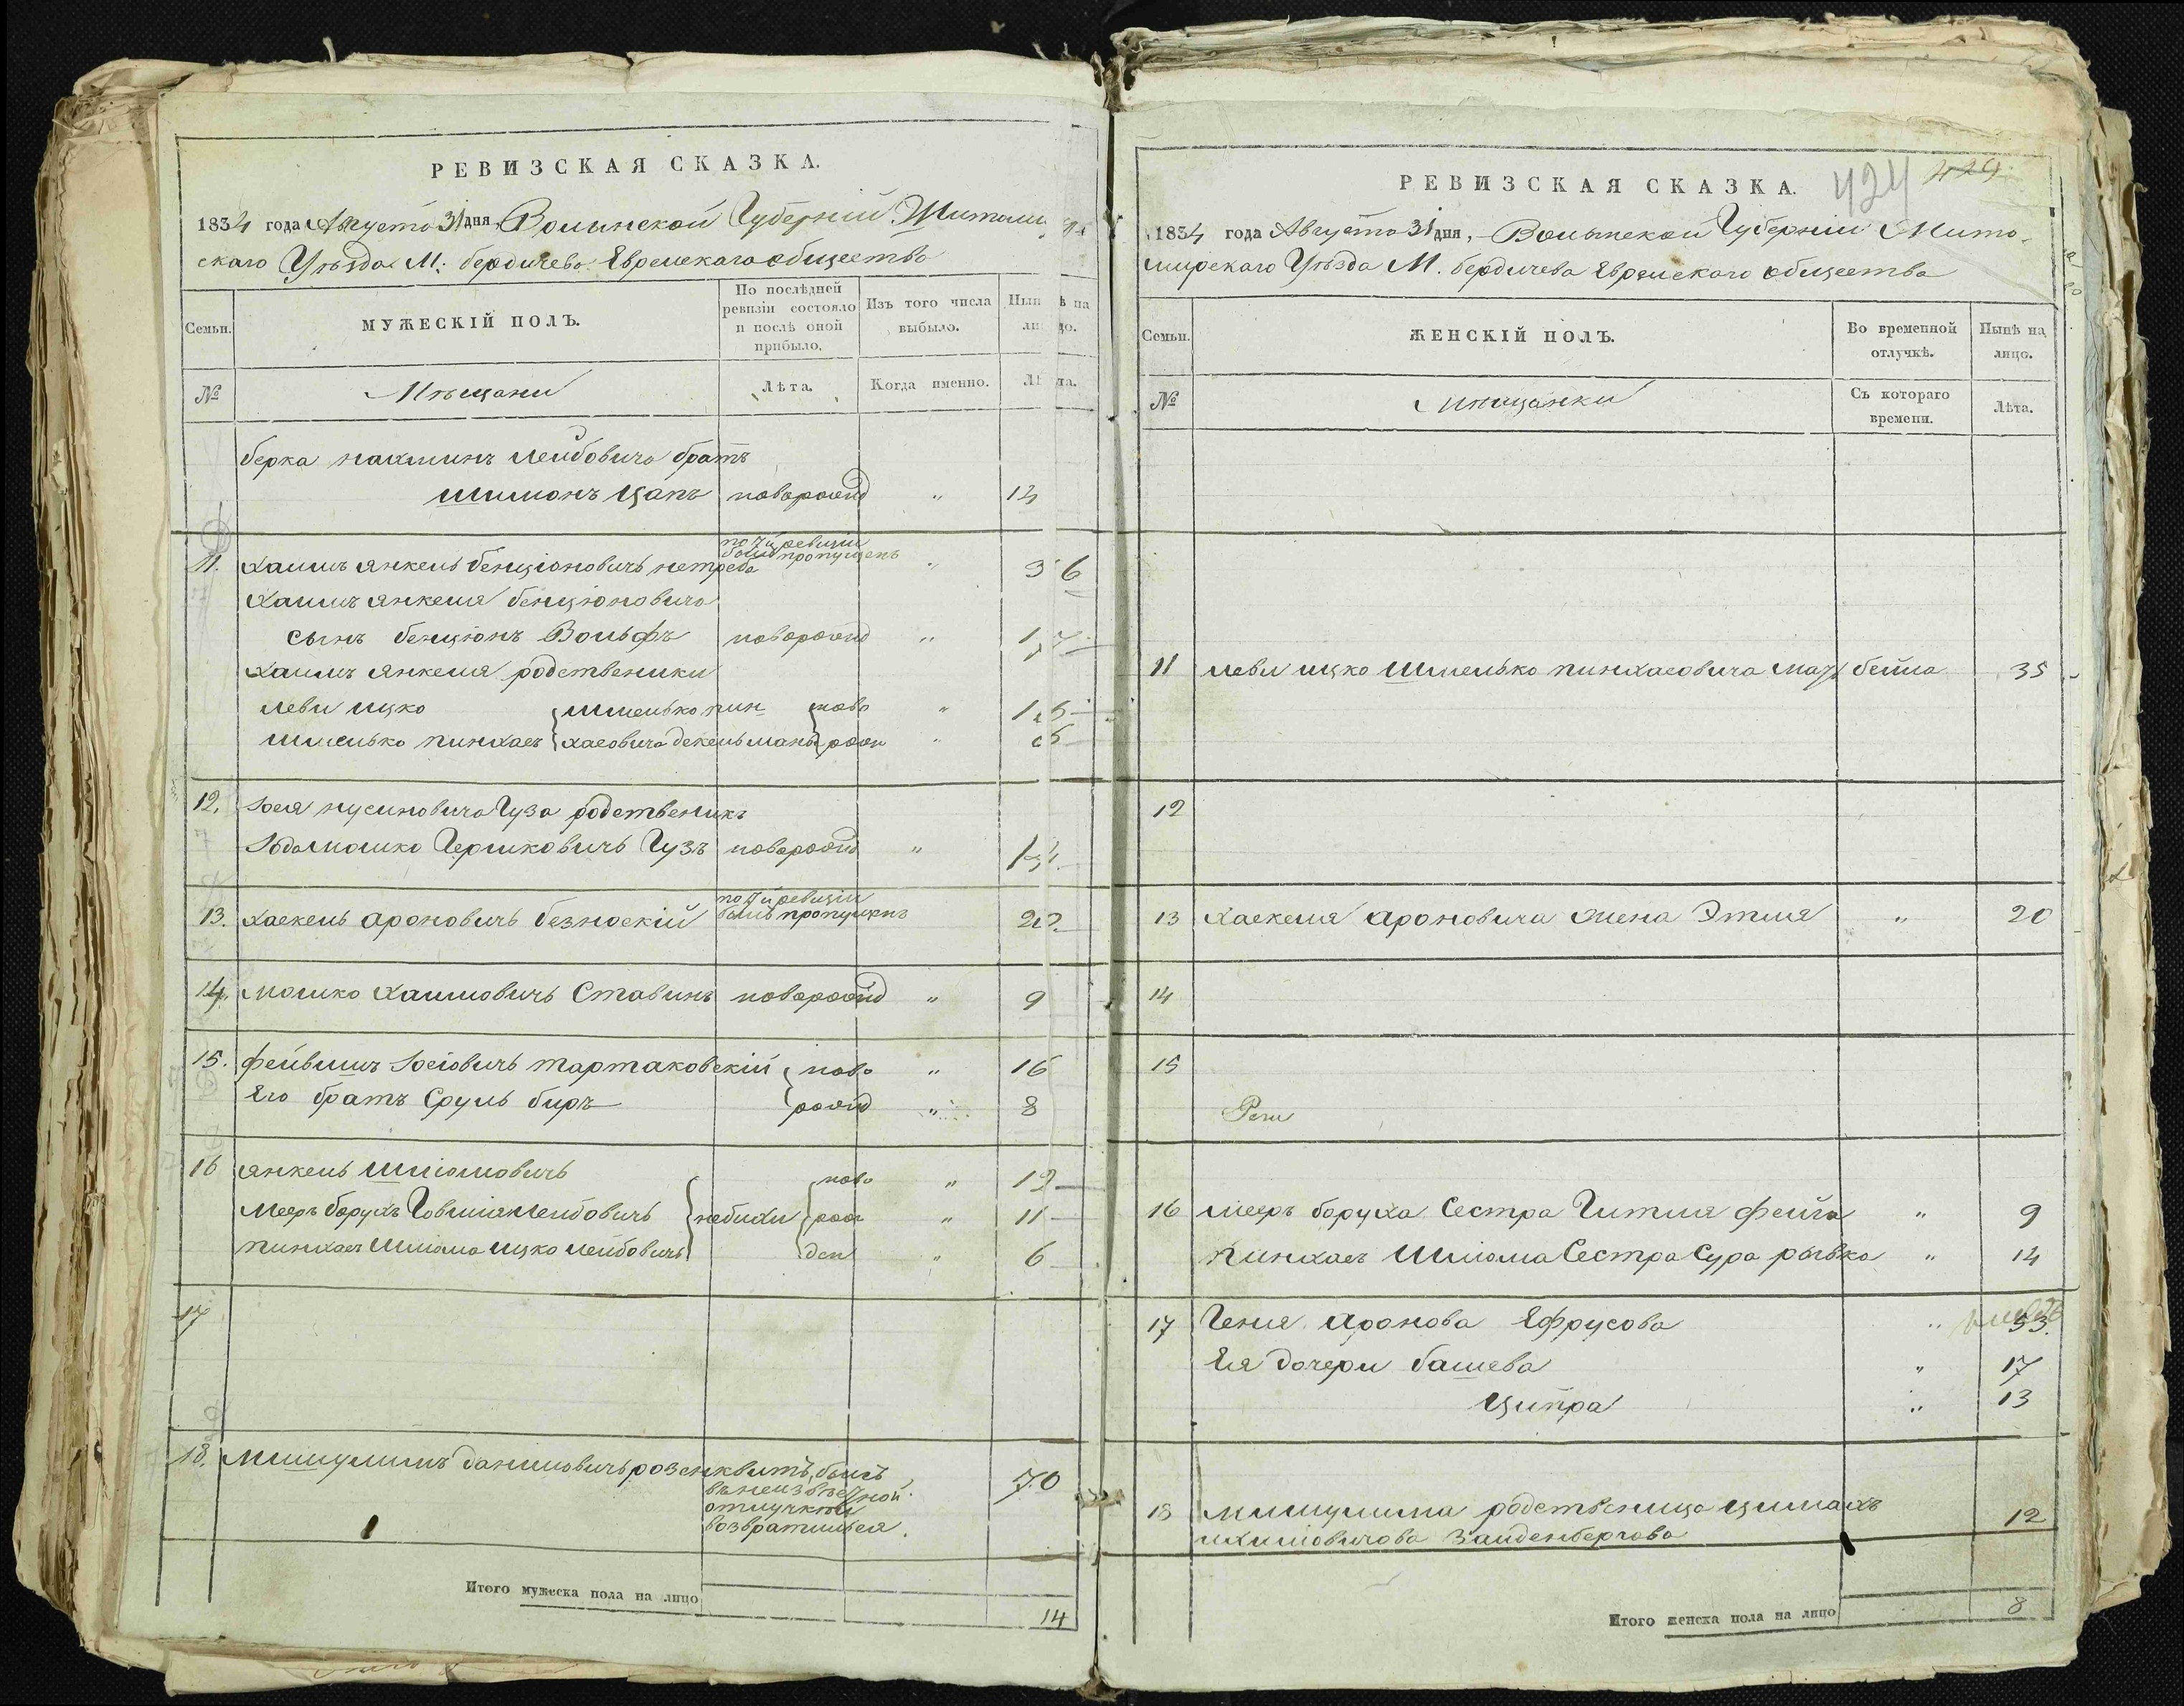 РЕВИЗСКАЯ СКАЗКА.
1834 года Августа 31 дня, Волынской Губерніи Житоми
скаго Уѣзда М: бердичева Еврейскаго общества
Семьи.
МУЖЕСКІЙ ПОЛЪ.
По послѣдней
ревизіи состояло
и послѣ оной
прибыло.
Изъ того числа
выбыло.
Нынѣ на
лицо.
№
Мѣщани
Лѣта.
Когда именно.
Лѣта.
берка нахманъ лейбовича братъ
Шимонъ Цапъ новорожд " 14
по 7й ревизіи
былъ пропущенъ
11. Хаимъ янкель бенціоновичь нетреба " 36
Хаимъ янкеля бенціоновича
сынъ бенціонъ Вольфъ новорожд " 17
Хаимъ янкеля родственики
леви ицко Шмелько пин ново " 15
Шмелько пинхасъ хасовича декельманы рожд " 5
12. Іося нусиновича Гуза родственикъ
Іодамошко Гершковичь Гузъ новорожд " 14
по 7й ревизіи
былъ пропущенъ
13. Хаскель ароновичь безноскій 22
14. Мошко Хаимовичь Ставинъ новорожд " 9
15. фейвишъ Іосіовичь тартаковскій ново " 16
Его братъ Сруль биръ рожд " 8
16 янкель Шліомовичь ново " 12
Мееръ борухъ Говшія лейбовичь небихи рож " 11
пинхасъ Шліома ицко лейбовичь ден " 6
17
18. Мишулимъ даниловичь розенквитъ, былъ 70
въ неизвѣстной
отлучкѣ и
возвратился.
Итого мужеска пола на лицо
14
424
РЕВИЗСКАЯ СКАЗКА.
1834 года Августа 31 дня, Волынской Губерніи Жито-
мирскаго Уѣзда М. бердичева Еврейскаго общества
Семьи.
ЖЕНСКІЙ ПОЛЪ.
Во временной
отлучкѣ.
Нынѣ на
лицо.
№
Мѣщанки
Съ котораго
времени.
Лѣта.
11 леви ицко Шмелько пинхасовича мать бейла 35
12
13 Хаскеля ароновича жена Этля " 20
14
15
16 мееръ боруха Сестра Гитля фейга " 9
пинхасъ Шліома Сестра Сура рывка " 14
17 Геня аронова Ефрусова " 33.
Ея дочери башева " 17
Ципра " 13
18 мишулима родственица цимахъ 12
ихиловичова Зайденбергова
Итого женска пола на лицо
8